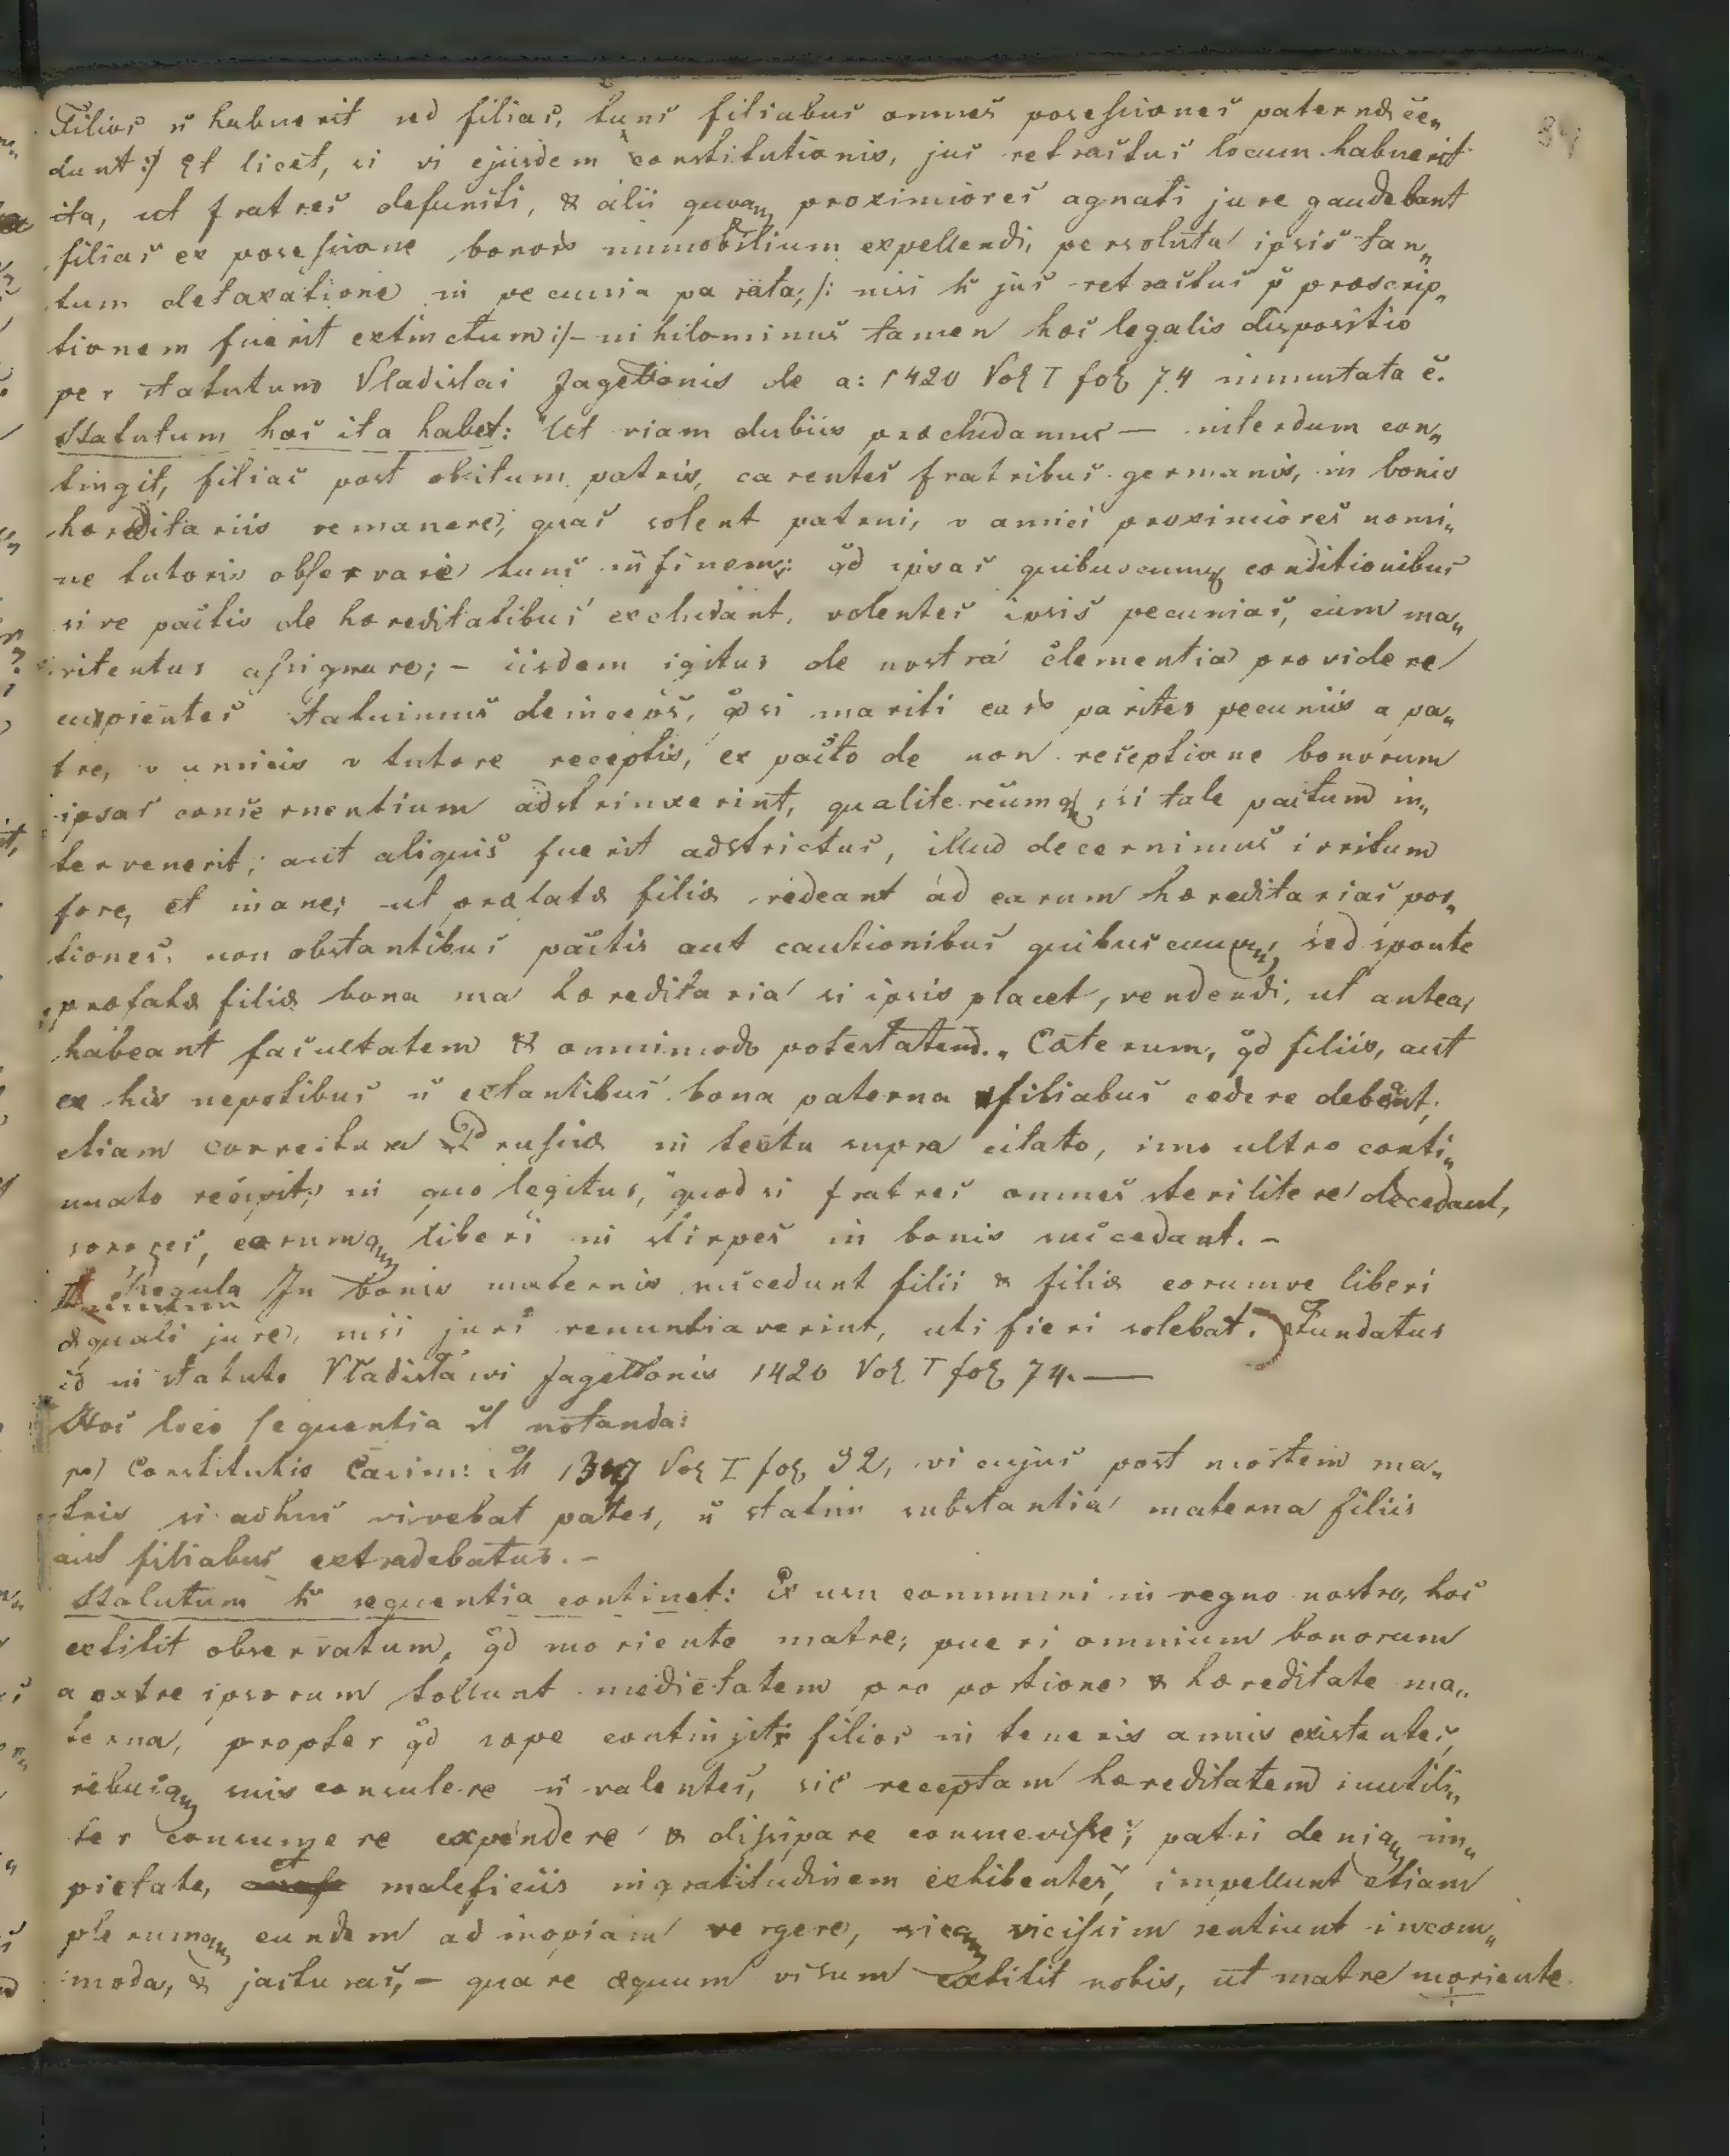 Filios ñ habuerit sed filias, tunc filiabus omnes possessiones paternæ ce„
dunt :/ Et licet, si vi ejusdem constitutionis, jus retractus locum habuerit
ita, ut fratres defuncti, & alii proximiores agnati jure gaudebant
filias ex possessione immobilium expellendi, persoluta ipsis tan„
tum detaxatione in pecunia parata; /: nisi jus retractus præscrip„
tionem fuerit extinctum :/– nihilominus tamen hæc legalis dispositio
per statutum Vladislai Jagellonis de a: 1420 Vol I fol 74 immutata ē.
Statutum hoc ita habet: "Ut viam dubiis præcludamus — interdum con„
tingit, filias post obitum patris, carentes fratribus germanis, in bonis
hæreditariis remanere, quas solent patrui, v amici proximiores nomi„
ne tutoris observare tunc in finem; qd ipsas quibuscumq conditionibus
sive pactis de hæreditatibus excludant, volentes ipsis pecunias, cum ma„
ritentur assignare; – iisdem igitur de nostra clementia providere
cupientes statuimus deinceps, qd si mariti pariter pecuniis a pa„
tre, v amicis v tutore receptis, ex pacto de non receptione bonorum
ipsas concernentium adstrinxerint, qualitercumq, si tale pactum in„
tervenerit; aut aliquis fuerit adstrictus, illud decernimus irritum
fore, et inane; ut prælatæ filiæ redeant ad earum hæreditarias por„
tiones, non obstantibus pactis aut cautionibus quibuscumq, sed sponte
præfatæ filiæ bona sua hæreditaria si ipsis placet, vendendi, ut antea,
habeant facultatem & omnimodo potestatem.„ Cæterum, qd filiis, aut
ex his nepotibus ñ extantibus bona paterna filiabus cedere debeant,
etiam correctura Prussiæ in textu supra citato, imo ultro conti„
nuato recipit, in quo legitur, "quod si fratres omnes steriliter decedant,
sorores, earumq liberi in stirpes in bonis succedant. –
II Regula In bonis maternis succedunt filii & filiæ eorumve liberi
æquali jure, nisi juri renuntiaverint, uti fieri solebat. Fundatur
id in statuto Vladislawi Jagellonis 1420 Vol. I fol 74. —
Hoc loco sequentia st notanda:
Constitutio Casim: M 1347 Vol I fol 32, vi cujus post mortem ma„
tris si adhuc vivebat pater, ñ statim substantia materna filiis
aut filiabus extradebatur. –
Statutum h sequentia continet: Ex usu communi in regno nostro, hoc
extitit observatum, qd moriente matre, pueri omnium bonorum
a patre ipsorum tollunt medietatem pro portione & hæreditate ma„
terna, propter qd sæpe contingit filios in teneris annis existentes,
rebusq suis consulere ñ valentes, sic receptam hæreditatem inutili„
ter consumere expendere & dissipare consuevisse; patri deniq im„
pietate, et maleficiis ingratitudinem exhibentes, impellunt etiam
plerumq eundem ad inopiam vergere, sicq vicissim sentiunt incom„
moda, & jacturas, – quare æquum visum extitit nobis, ut matre moriente